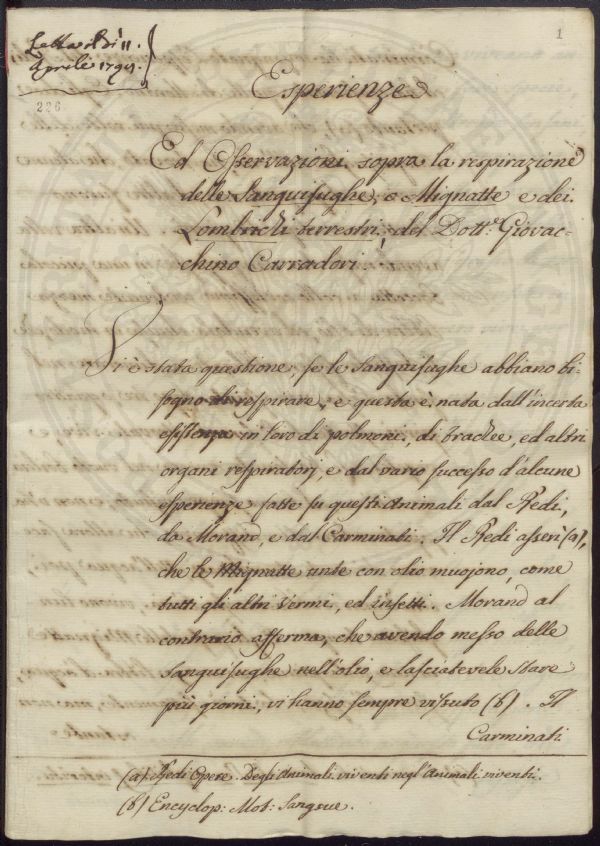 Letta il dì 11.
Aprile 1791.
226
1
Esperienze
Ed Osservazioni sopra la respirazione
delle Sanguisughe, o Mignatte e dei
Lombrichi terrestri, del Dott.e Giovac-
chino Carradori.
Vi è stata questione, se le Sanguisughe abbiano bi-
sogno di respirare, e questa è nata dall'incerta
esistenza in loro di polmoni, di trachee, ed altri
organi respiratorj, e dal vario successo d'alcune
esperienze fatte su questi Animali dal Redi,
da Morand, e dal Carminati. Il Redi asserì (a),
che le Mignatte unte con olio muojono, come
tutti gli altri Vermi, ed insetti. Morand al
contrario afferma, che avendo messo delle
Sanguisughe nell'olio, e lasciatevele stare
più giorni, vi hanno sempre vissuto (b). Il
Carminati
(a) Redi Opere. Degli Animali viventi negl'Animali viventi.
(b) Encyclop: Mot: Sangsue.